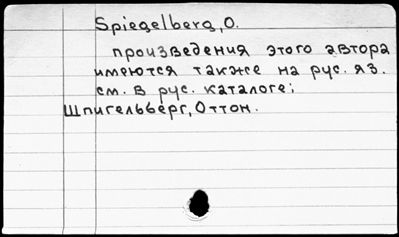 Spiegelberg, O.
произведения этого автора
имеются также на рус. яз.
см. в рус. каталоге:
Шпигельберг, Оттон.